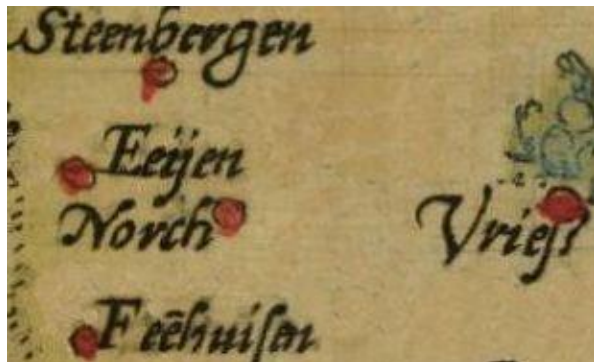 Steenbergen
Eeijen
Norch
Vrieſ
Feēhuiſen